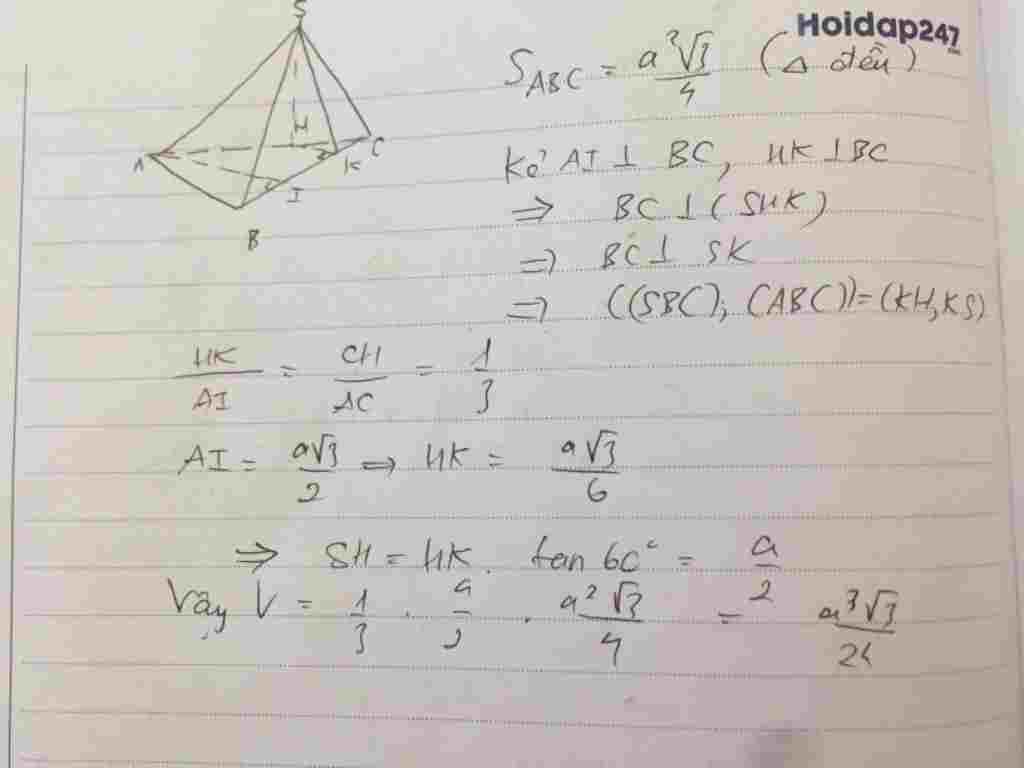 Hoidap247
S
A
H
C
K
I
B
S_ABC = a²√3/4 (△ đều)
Kẻ AI ⊥ BC, HK ⊥ BC
⇒ BC ⊥ (SHK)
⇒ BC ⊥ SK
⇒ ((SBC); (ABC)) = (KH, KS)
HK/AI = CH/AC = 1/3
AI = a√3/2 ⇒ HK = a√3/6
⇒ SH = HK . tan 60° = a/2
Vậy V = 1/3 . a/2 . a²√3/4 = a³√3/24